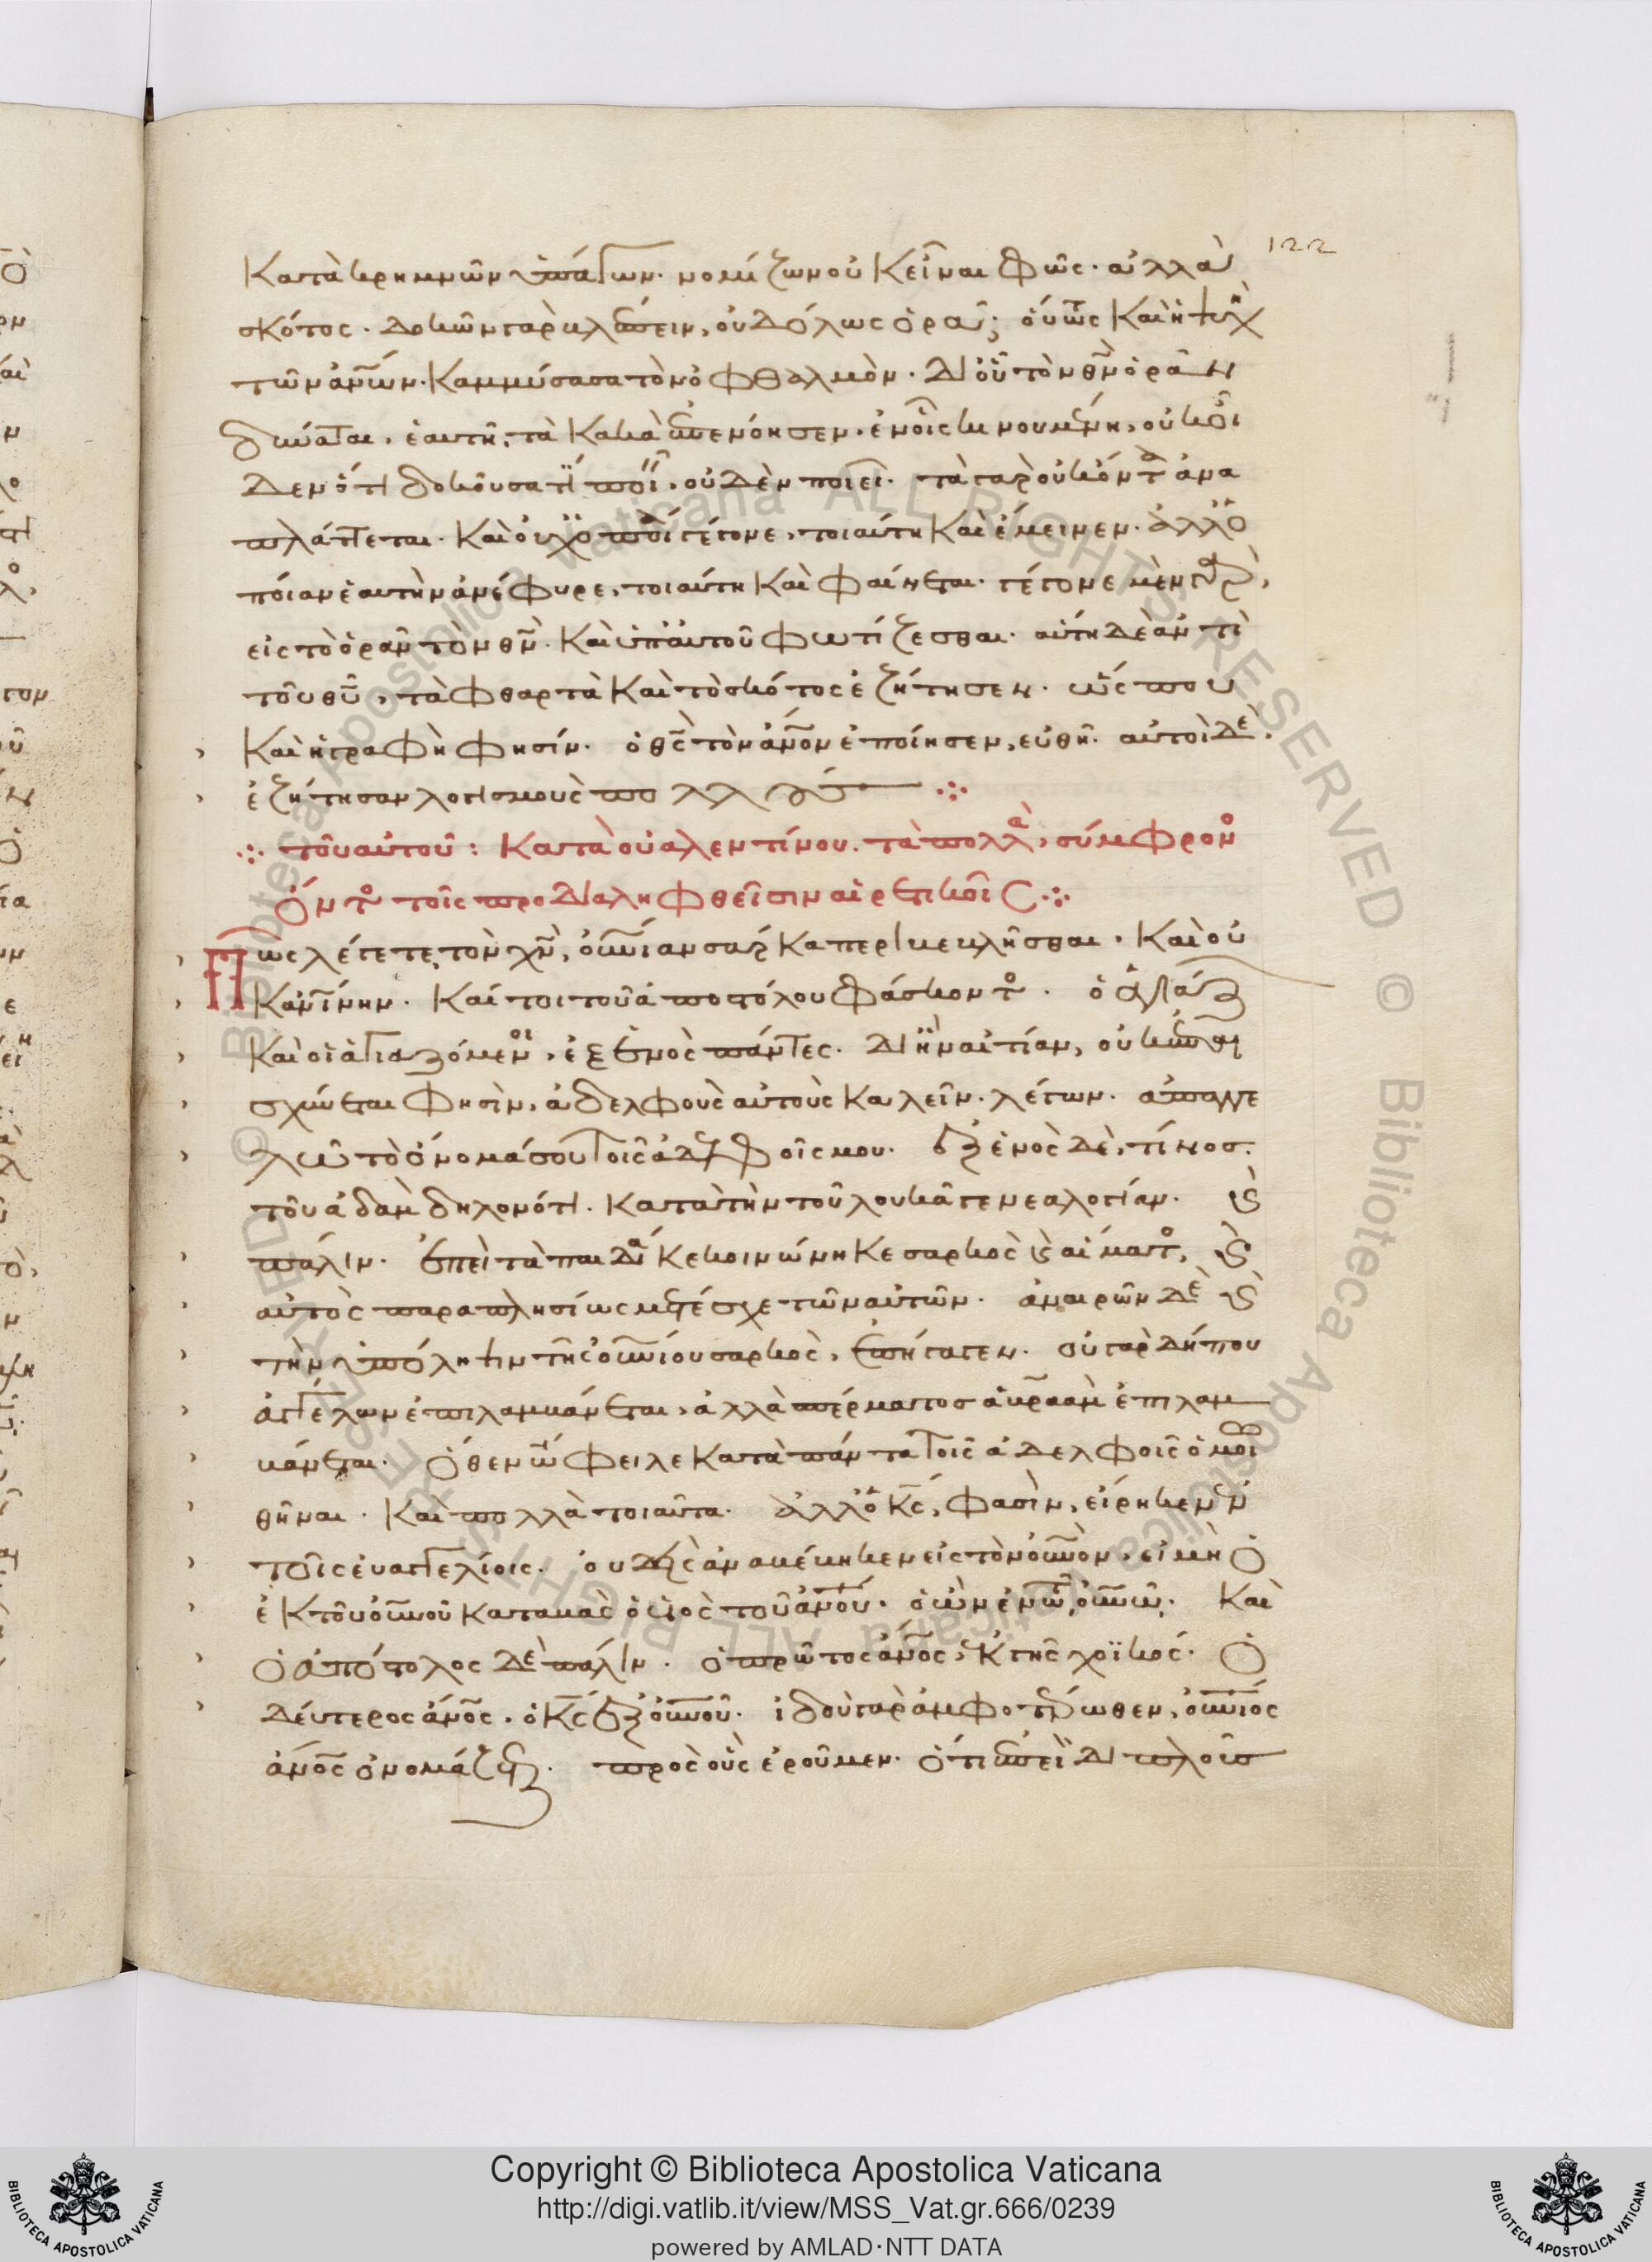 122
Κατὰ κρημνῶν ὑπάγων. νομίζων οὐκ εἶναι φῶς. ἀλλὰ
σκότος. δοκῶν γὰρ βλέπειν, οὐδόλως ὁρᾷ; οὕτως καὶ ἡ ψυχὴ
τῶν ἀνων. καμμύσασα τὸν ὀφθαλμὸν. δι οὗ τὸν θν ὁρᾶν
δύναται, ἑαυτῇ τὰ κακὰ ἐπενόησεν. ἐν οἷς κινουμένη, οὐκ οἶ
δεν ὅτι δοκοῦσα τὶ ποιεῖν, οὐδὲν ποιεῖ. τὰ γὰρ οὐκ ὄντα ἀνα
πλάττεται. καὶ οὐχ ὁποία γέγονε, τοιαύτη καὶ ἔμεινεν. ἀλλ ὁ
ποίαν ἑαυτὴν ἀνέφυρε, τοιαύτη καὶ φαίνεται. γέγονε μὲν γὰρ,
εἰς τὸ ὁρᾶν τὸν θν. καὶ ὑπ αὐτοῦ φωτίζεσθαι. αὕτη δὲ ἀντὶ
τοῦ θυ, τὰ φθαρτὰ καὶ τὸ σκότος ἐζήτησεν. ὥς που
καὶ ἡ γραφὴ φησίν. ὁ θς τὸν ἄνον ἐποίησεν, εὐθῆ. αὐτοὶ δὲ
ἐζήτησαν λογισμοὺς πολλούς
τοῦ αὐτοῦ: κατὰ οὐαλεντίνου. τὰ πολλὰ, σύμφρον
ὄντος τοῖς προδιαληφθεῖσιν αἱρετικοῖς
Πῶς λέγετε τὸν χν, οὐνιαν σάρκα περικεκλῆσθαι. καὶ οὐ
κ ἀνίνην. καίτοι τοῦ ἀποστόλου φάσκοντος. ὁ ἁγιάζων
καὶ οἱ ἁγιαζόμενοι, ἐξ ἑνὸς πάντες. δι ἣν αἰτίαν, οὐκ ἐπαι
σχύνεται φησὶν, ἀδελφοὺς αὐτοὺς καλεῖν. λέγων. ἀπαγγε
λῶ τὸ ὄνομά σου τοῖς ἀδελφοῖς μου. ἐξ ἑνὸς δὲ, τίνος.
τοῦ ἀδαμ δηλονότι. κατὰ τὴν τοῦ λουκᾶ γενεαλογίαν. καὶ
πάλιν. ἐπεὶ τὰ παιδία κεκοινώνηκε σαρκὸς καὶ αἵματος, καὶ
αὐτὸς παραπλησίως μετέσχε τῶν αὐτῶν. ἀναιρῶν δὲ καὶ
τὴν ὑπόληψιν τῆς οὐνίου σαρκὸς, ἐπήγαγεν. οὐ γὰρ δήπου
ἀγγέλων ἐπιλαμβάνεται, ἀλλὰ σπέρματος ἁβρααμ ἐπιλαμ
βάνεται. ὅθεν ὤφειλε κατὰ πάντα τοῖς ἀδελφοῖς ὁμοιω
θῆναι. καὶ πολλὰ τοιαῦτα. ἀλλ ὁ κς, φασὶν, εἴρηκεν ἐν
τοῖς εὐαγγελίοις. οὐδεὶς ἀναβέβηκεν εἰς τὸν οὐνον, εἰ μὴ ὁ
ἐκ τοῦ οὐνοῦ καταβὰς ὁ υἱὸς τοῦ ἀνου. ὁ ὢν ἐν τῷ οὐνῷ. καὶ
ὁ ἀπόστολος δὲ πάλιν. ὁ πρῶτος ἄνος, ἐκ γῆς χοϊκός. ὁ
δεύτερος ἄνος. ὁ κς ἐξ οὐνοῦ. ἰδοὺ γὰρ ἀμφοτέρωθεν, οὐνιος
ἄνος ὀνομάζεται. πρὸς οὓς ἐροῦμεν. ὅτι ἐπεὶ διπλοῦς
Copyright © Biblioteca Apostolica Vaticana
http://digi.vatlib.it/view/MSS_Vat.gr.666/0239
powered by AMLAD·NTT DATA